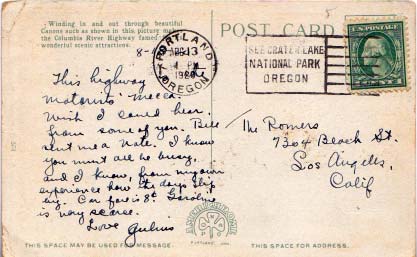 Winding in and out through beautiful
Canons such as shown in this picture make
the Columbia River Highway famed for
wonderful scenic attractions.
PORTLAND
AUG 13
PM
1920
OREGON
SEE CRATER LAKE
NATIONAL PARK
OREGON
U.S. POSTAGE
8-
This highway is the
motorists' mecca.
Wish I could hear
from some of you. Bill
sent me a note. I know
you must all be busy,
and I know, from my own
experience how the days slip
by. Car fare is 8¢. Gasoline
is very scarce.
Love
The Romers
7304 Beach St.
Los Angeles,
Calif
PORTLAND, ORE
THIS SPACE MAY BE USED FOR MESSAGE.
THIS SPACE FOR ADDRESS.